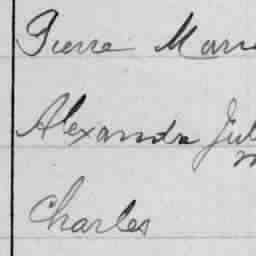 Pierre Marie
Alexandre Jul
Charles